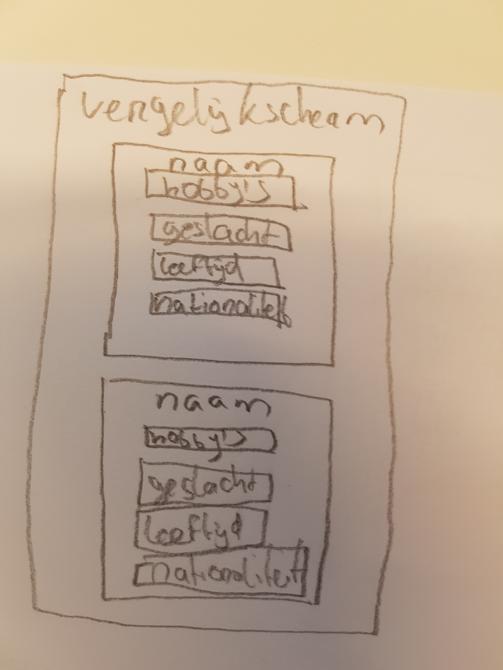 vergelijkscheam
naam
hobby's
geslacht
leeftijd
nationaliteit
naam
hobby's
geslacht
leeftijd
nationaliteit